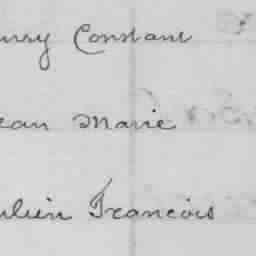 enry Constant
ean Marie
ulien Francois